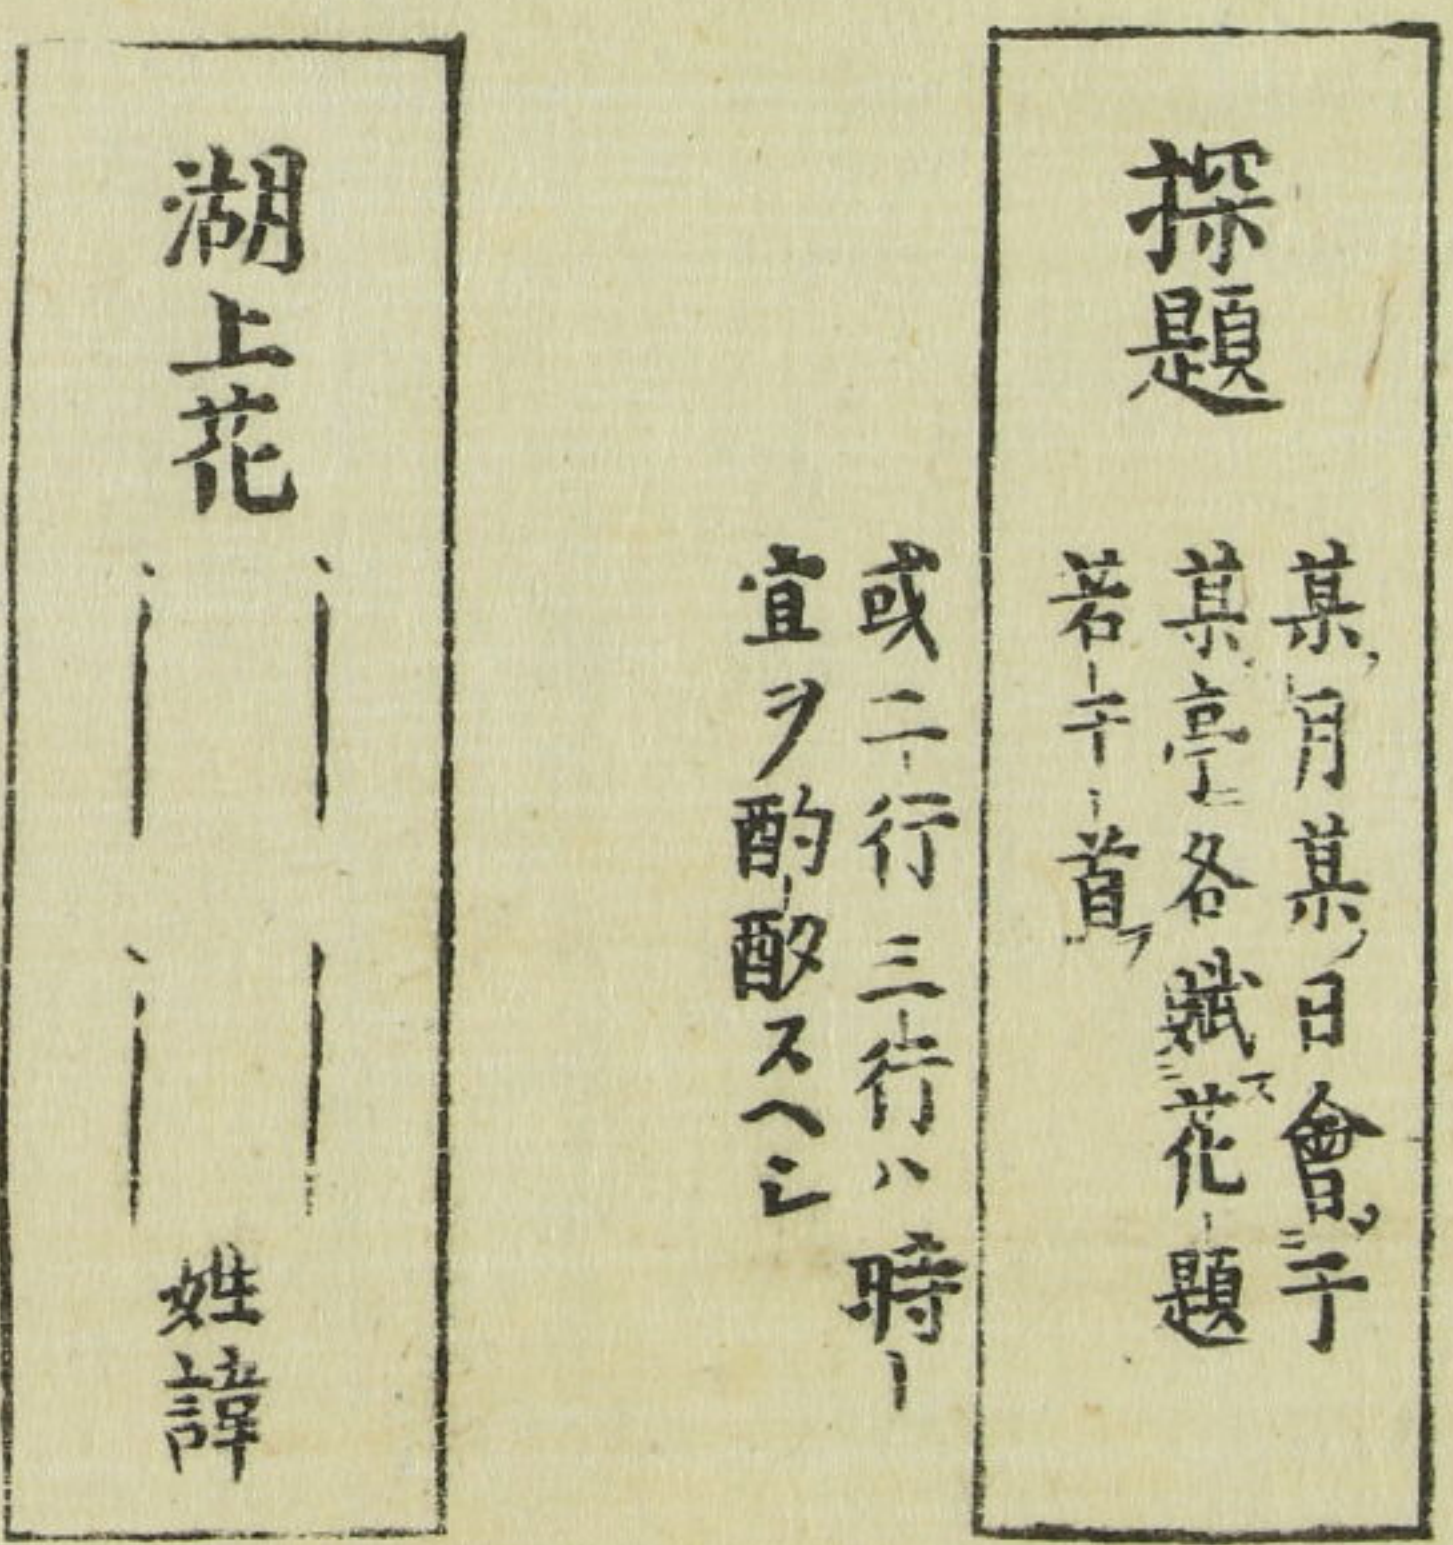 探題
某月某日會于
某亭各賦花題
若干首
或二行三行ハ時
宜ヲ酌酸スヘシ
湖上花
姓諱